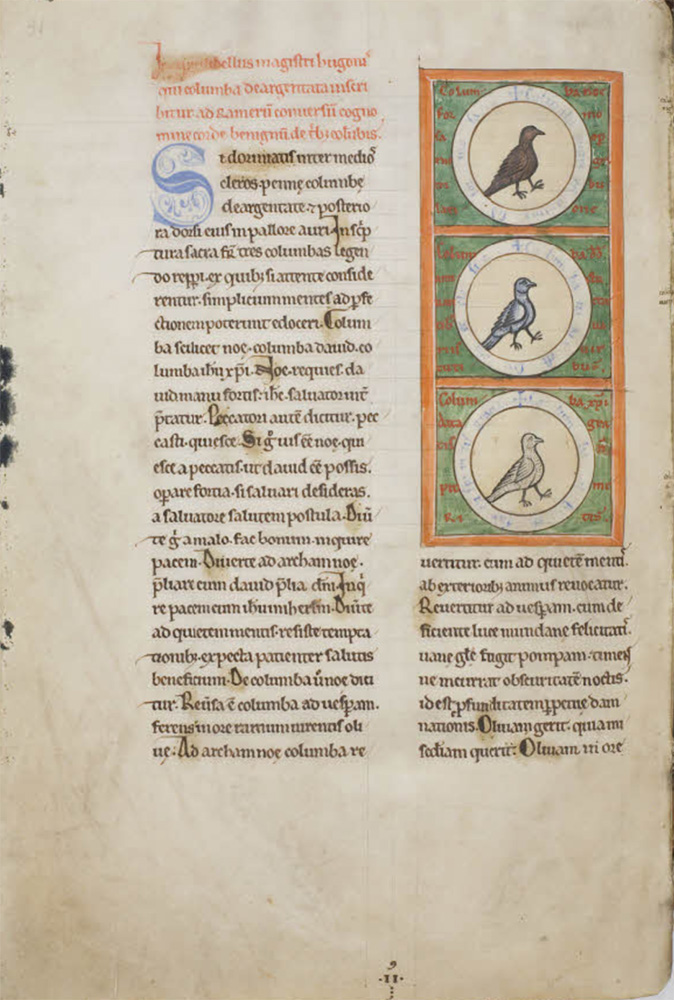 libellus magistri hugonis
qui columba deargentata inscri
bitur ad Ramerū conversū cogno
mine corde benignū de t'b; colūbis.
Si dormiatis inter medios
cleros pennę columbę
deargentate ⁊ posterio
ra dorsi eius in pallore auri. In sc'p
tura sacra fr̄s tres columbas legen
do repp̲i. ex quib; si attente conside
rentur. simplicium mentes ad p̲fe
ctionem poterunt edoceri. Colum
ba scilicet noe. columba dauid. co
lumba ihu xp̄i. Noe requies. da
uid manu fortis. ihc saluator int'
p̄tratur. Peccatori autē dicitur. pec
casti. quiesce. Si gͦ uis ēē noe. qui
esce a peccatis. ut dauid ēē possis.
op̲are fortia. si saluari desideras.
a saluatore salutem postula. Diū
te gͦ a malo. fac bonum. inquire
pacem. Diuerte ad archam noe.
p̄liare cum dauid p̄lia dn̄i. Inq'
re pacem cum ihu in ihrlm. Diū'te
ad quietem mentis. resiste tempta
tionib;. expecta patienter salutis
beneficium. De columba ū noe dici
tur. Reū'sa ē columba ad uesp̲am.
ferens in ore ramum uirentis oli
ue. Ad archam noe columba re
Colum ba noe
Colum ba
Colum ba xp̄i
uertitur. cum ad quietē mentis
ab exteriorib; animus reuocatur.
Reuertitur ad uesp̲am. cum de
ficiente luce mundane felicitatis.
uane glē fugit pompam. timens
ne incurrat obscuritatē noctis.
id est p̲funditatem p̲petue dam
nationis. Oliuam gerit. quia mi
sc̄diam querit. Oliuam in ore
.II.